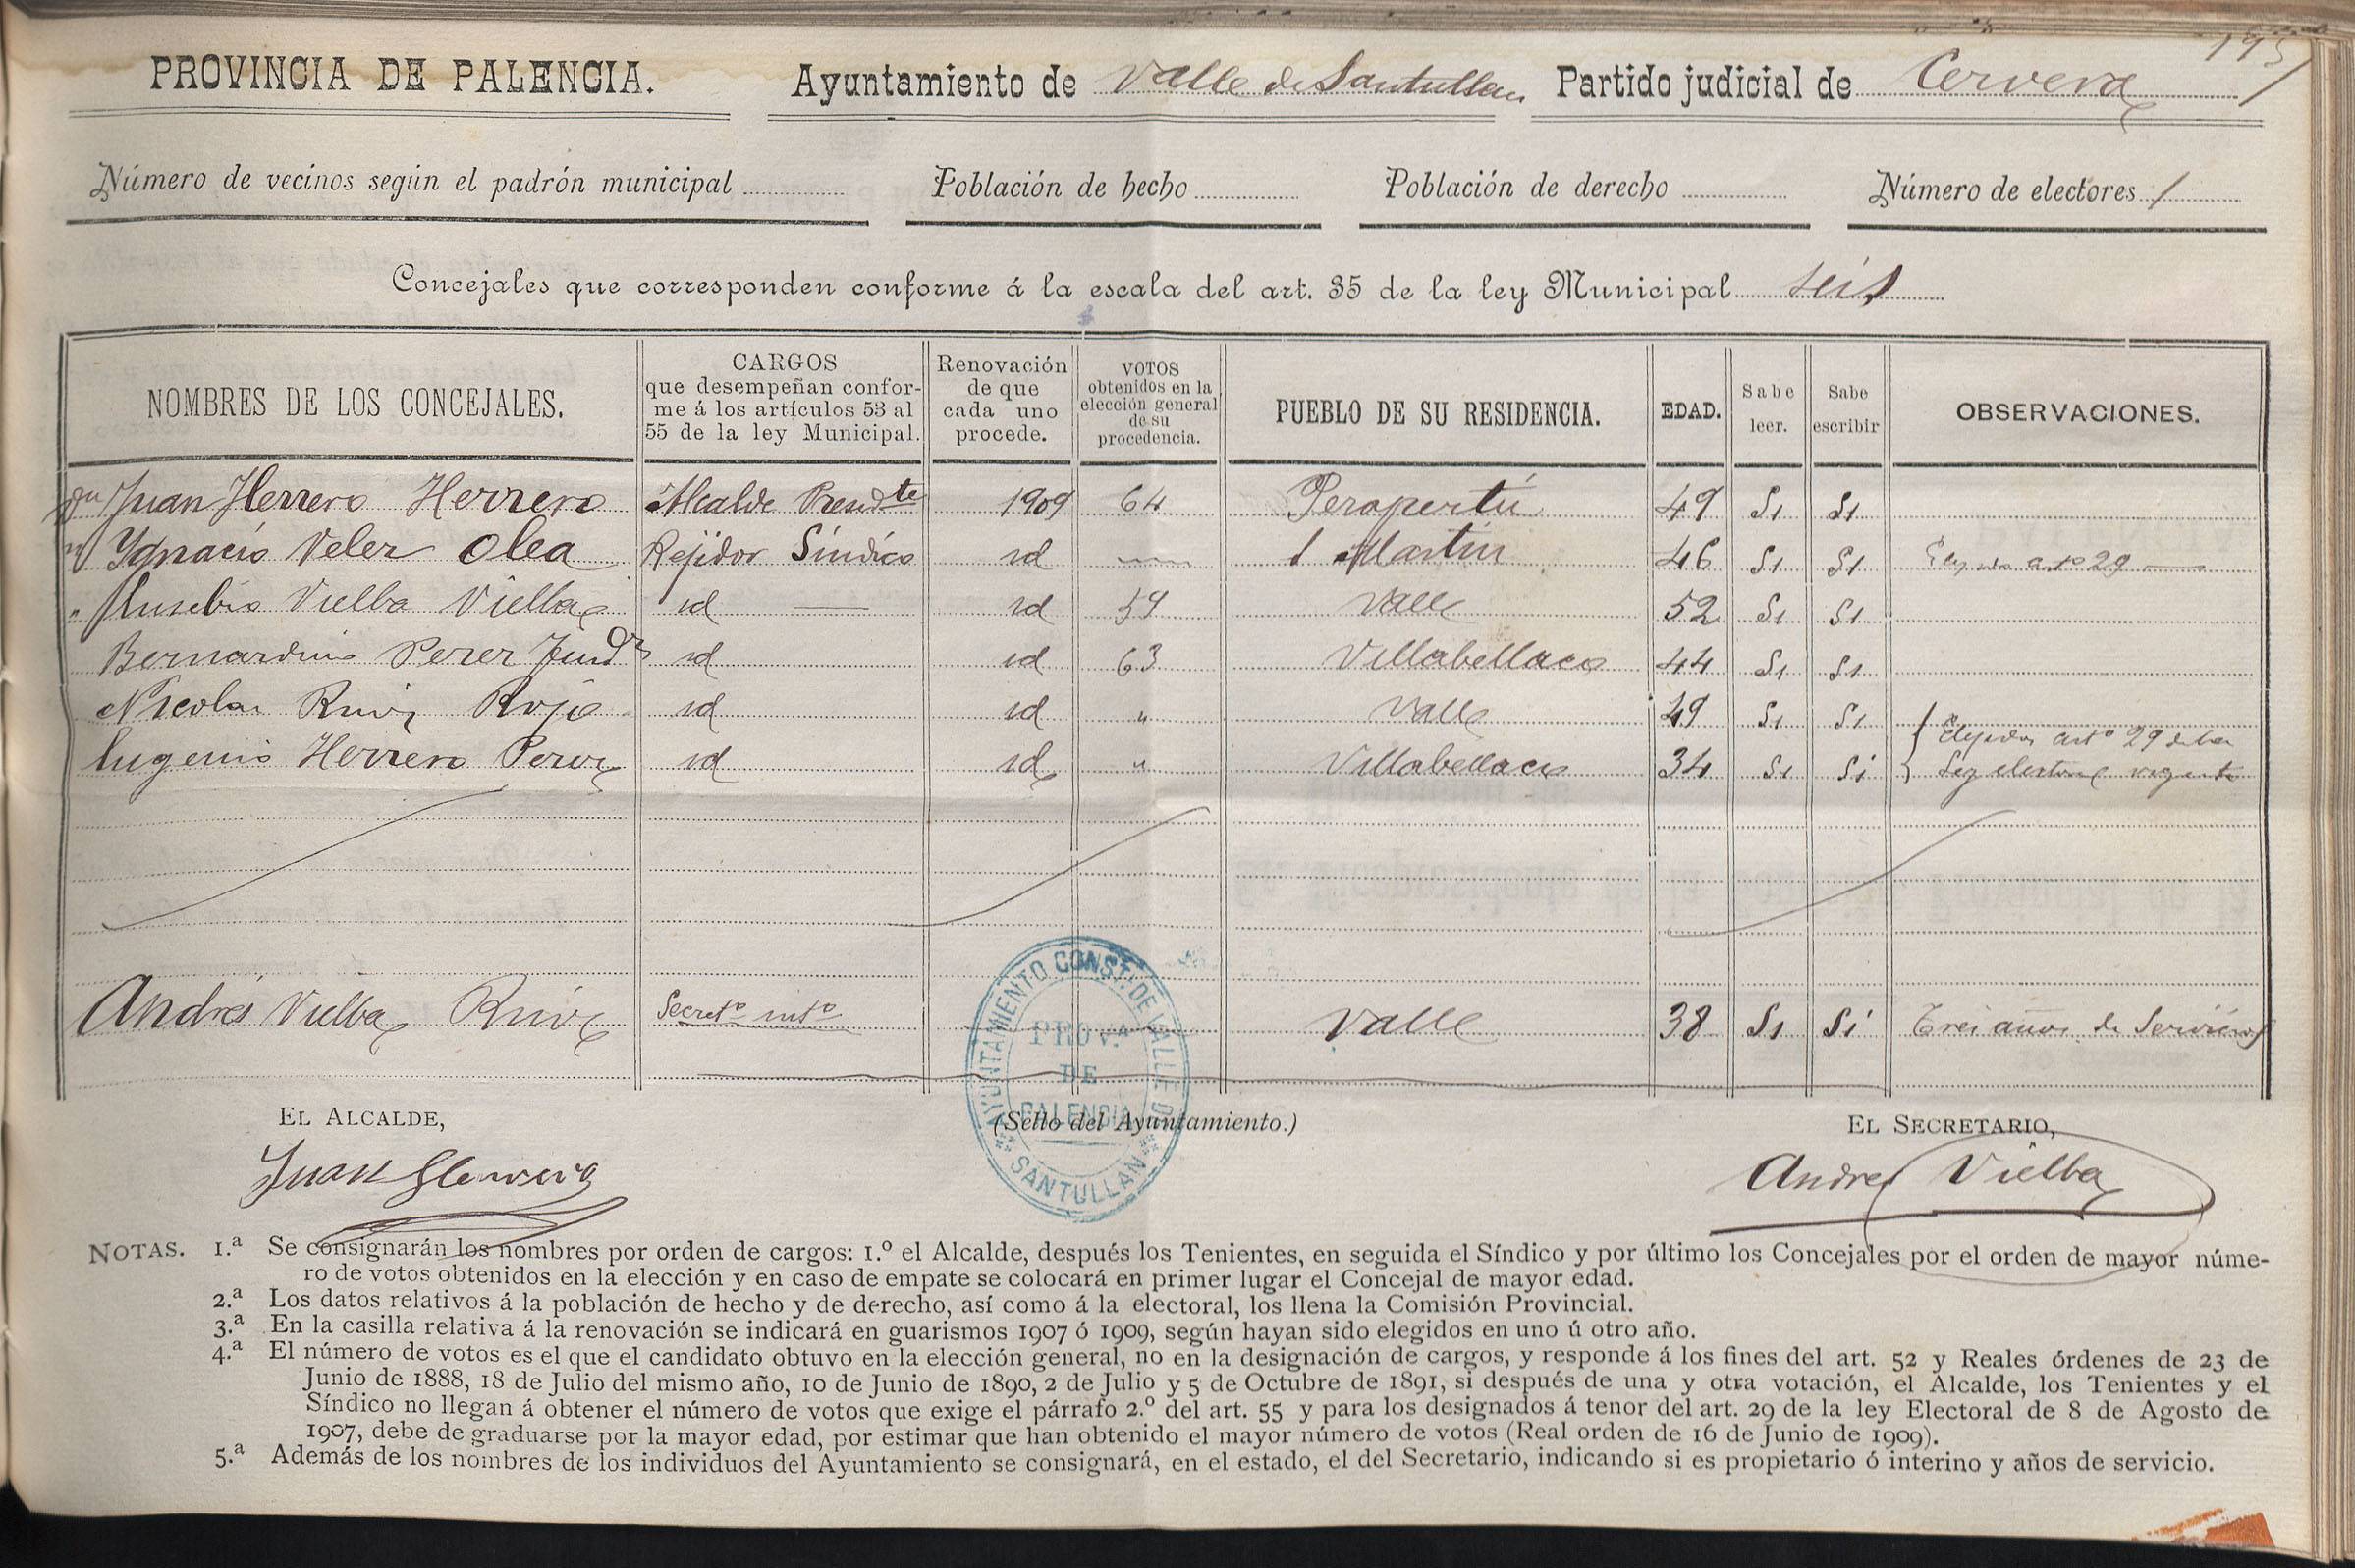 195
PROVINCIA DE PALENCIA. Ayuntamiento de Valle de Santullan Partido judicial de Cervera
Número de vecinos según el padrón municipal Población de hecho Población de derecho Número de electores
Concejales que corresponden conforme á la escala del art. 35 de la ley Municipal seis
NOMBRES DE LOS CONCEJALES. CARGOS que desempeñan confor- me á los artículos 53 al 55 de la ley Municipal. Renovación de que cada uno procede. VOTOS obtenidos en la elección general de su procedencia. PUEBLO DE SU RESIDENCIA. EDAD. Sabe leer. Sabe escribir OBSERVACIONES.
Juan Herrero Herrero Alcalde Presidte 1909 64 Perapertú 49 Si Si
Ygnacio Velez Olea Rejidor Síndico id S Martin 46 Si Si arto 29
Eusebio Vielba Vielba id id 59 Valle 52 Si Si
Bernardino Perez Fundz id id 63 Villabellaco 44 Si Si
Nicolas Ruiz Rojo id id " Valle 49 Si Si
Eugenio Herrero Perez id id " Villabellaco 34 Si Si
Elejidos arto 29 de la
Ley electoral vigente
Andrés Vielba Ruiz Secreto into Valle 38 Si Si Tres años de servicios
AYUNTAMIENTO CONST. DE VALLE DE SANTULLAN
PROV.A
DE
PALENCIA
EL ALCALDE, (Sello del Ayuntamiento.) EL SECRETARIO,
Juan Herrero Andres Vielba
NOTAS. 1.ª Se consignarán los nombres por orden de cargos: 1.º el Alcalde, después los Tenientes, en seguida el Síndico y por último los Concejales por el orden de mayor núme-
ro de votos obtenidos en la elección y en caso de empate se colocará en primer lugar el Concejal de mayor edad.
2.ª Los datos relativos á la población de hecho y de derecho, así como á la electoral, los llena la Comisión Provincial.
3.ª En la casilla relativa á la renovación se indicará en guarismos 1907 ó 1909, según hayan sido elegidos en uno ú otro año.
4.ª El número de votos es el que el candidato obtuvo en la elección general, no en la designación de cargos, y responde á los fines del art. 52 y Reales órdenes de 23 de
Junio de 1888, 18 de Julio del mismo año, 10 de Junio de 1890, 2 de Julio y 5 de Octubre de 1891, si después de una y otra votación, el Alcalde, los Tenientes y el
Síndico no llegan á obtener el número de votos que exige el párrafo 2.º del art. 55 y para los designados á tenor del art. 29 de la ley Electoral de 8 de Agosto de
1907, debe de graduarse por la mayor edad, por estimar que han obtenido el mayor número de votos (Real orden de 16 de Junio de 1909).
5.ª Además de los nombres de los individuos del Ayuntamiento se consignará, en el estado, el del Secretario, indicando si es propietario ó interino y años de servicio.